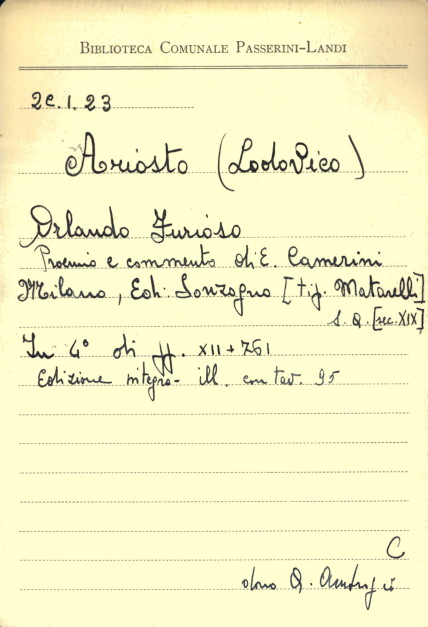 BIBLIOTECA COMUNALE PASSERINI-LANDI
2C.1.23
Ariosto (Lodovico)
Orlando Furioso
Proemio e commento di E. Camerini
Milano, Edi. Sonzogno [tip. Matarelli]
S. A. [sec. XIX]
In 4° di pp. XII + 761
Edizione integra - ill. con tav. 95
C
dono